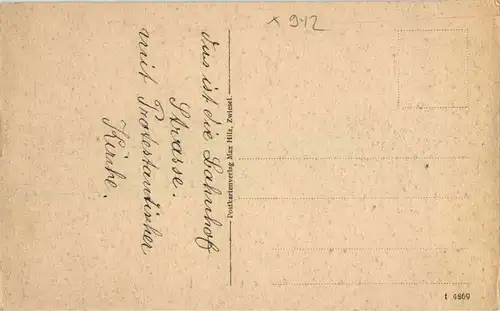 x 942
das ist die Bahnhof
Strasse.
mit Protestantischer
Kirche.
Postkartenverlag Max Hilz, Zwiesel
t 4869